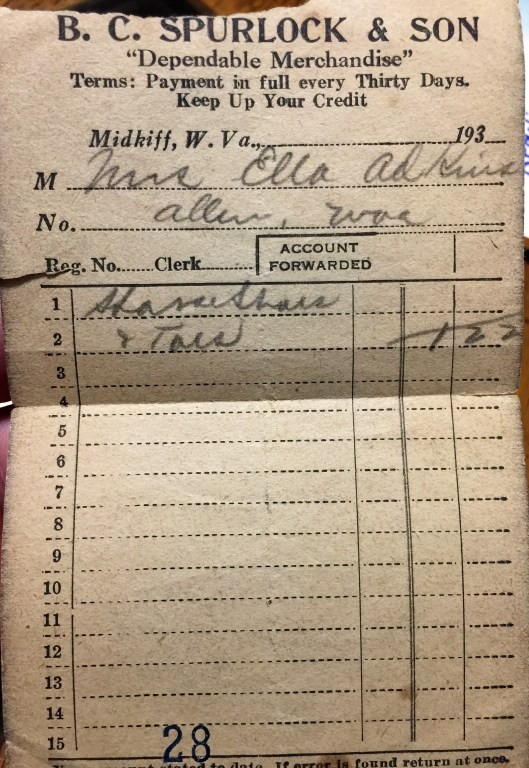 B. C. SPURLOCK & SON
"Dependable Merchandise"
Terms: Payment in full every Thirty Days.
Keep Up Your Credit
Midkiff, W. Va., 193
M Mrs Ella Adkins
No. Allen, wva
Reg. No. Clerk ACCOUNT FORWARDED
1 Horse Shoes
2 & Toes 1 22
3
4
5
6
7
8
9
10
11
12
13
14
15 28
stated to date. If error is found return at once.